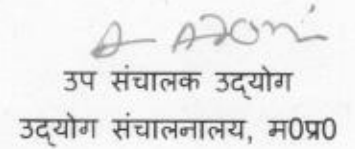 उप संचालक उद्योग
उद्योग संचालनालय, म0प्र0